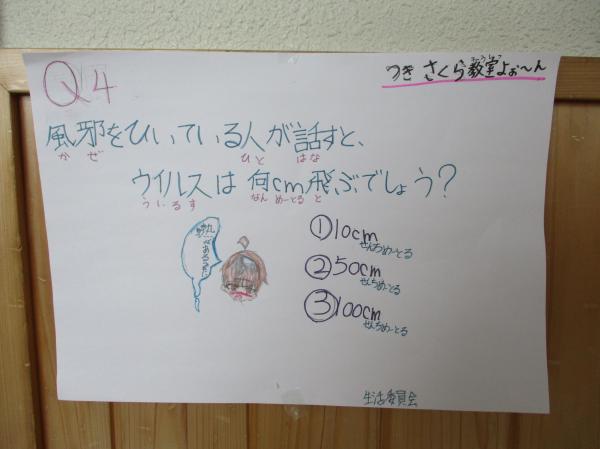 Q4
つき さくら教室よぉ〜ん
きょうしつ
風邪をひいている人が話すと、
かぜ ひと はな
ウイルスは 何cm飛ぶでしょう?
ういるす なん めーとる と
熱があるよ〜
①10cm
せんちめーとる
②50cm
せんちめーとる
③100cm
せんちめーとる
生活委員会